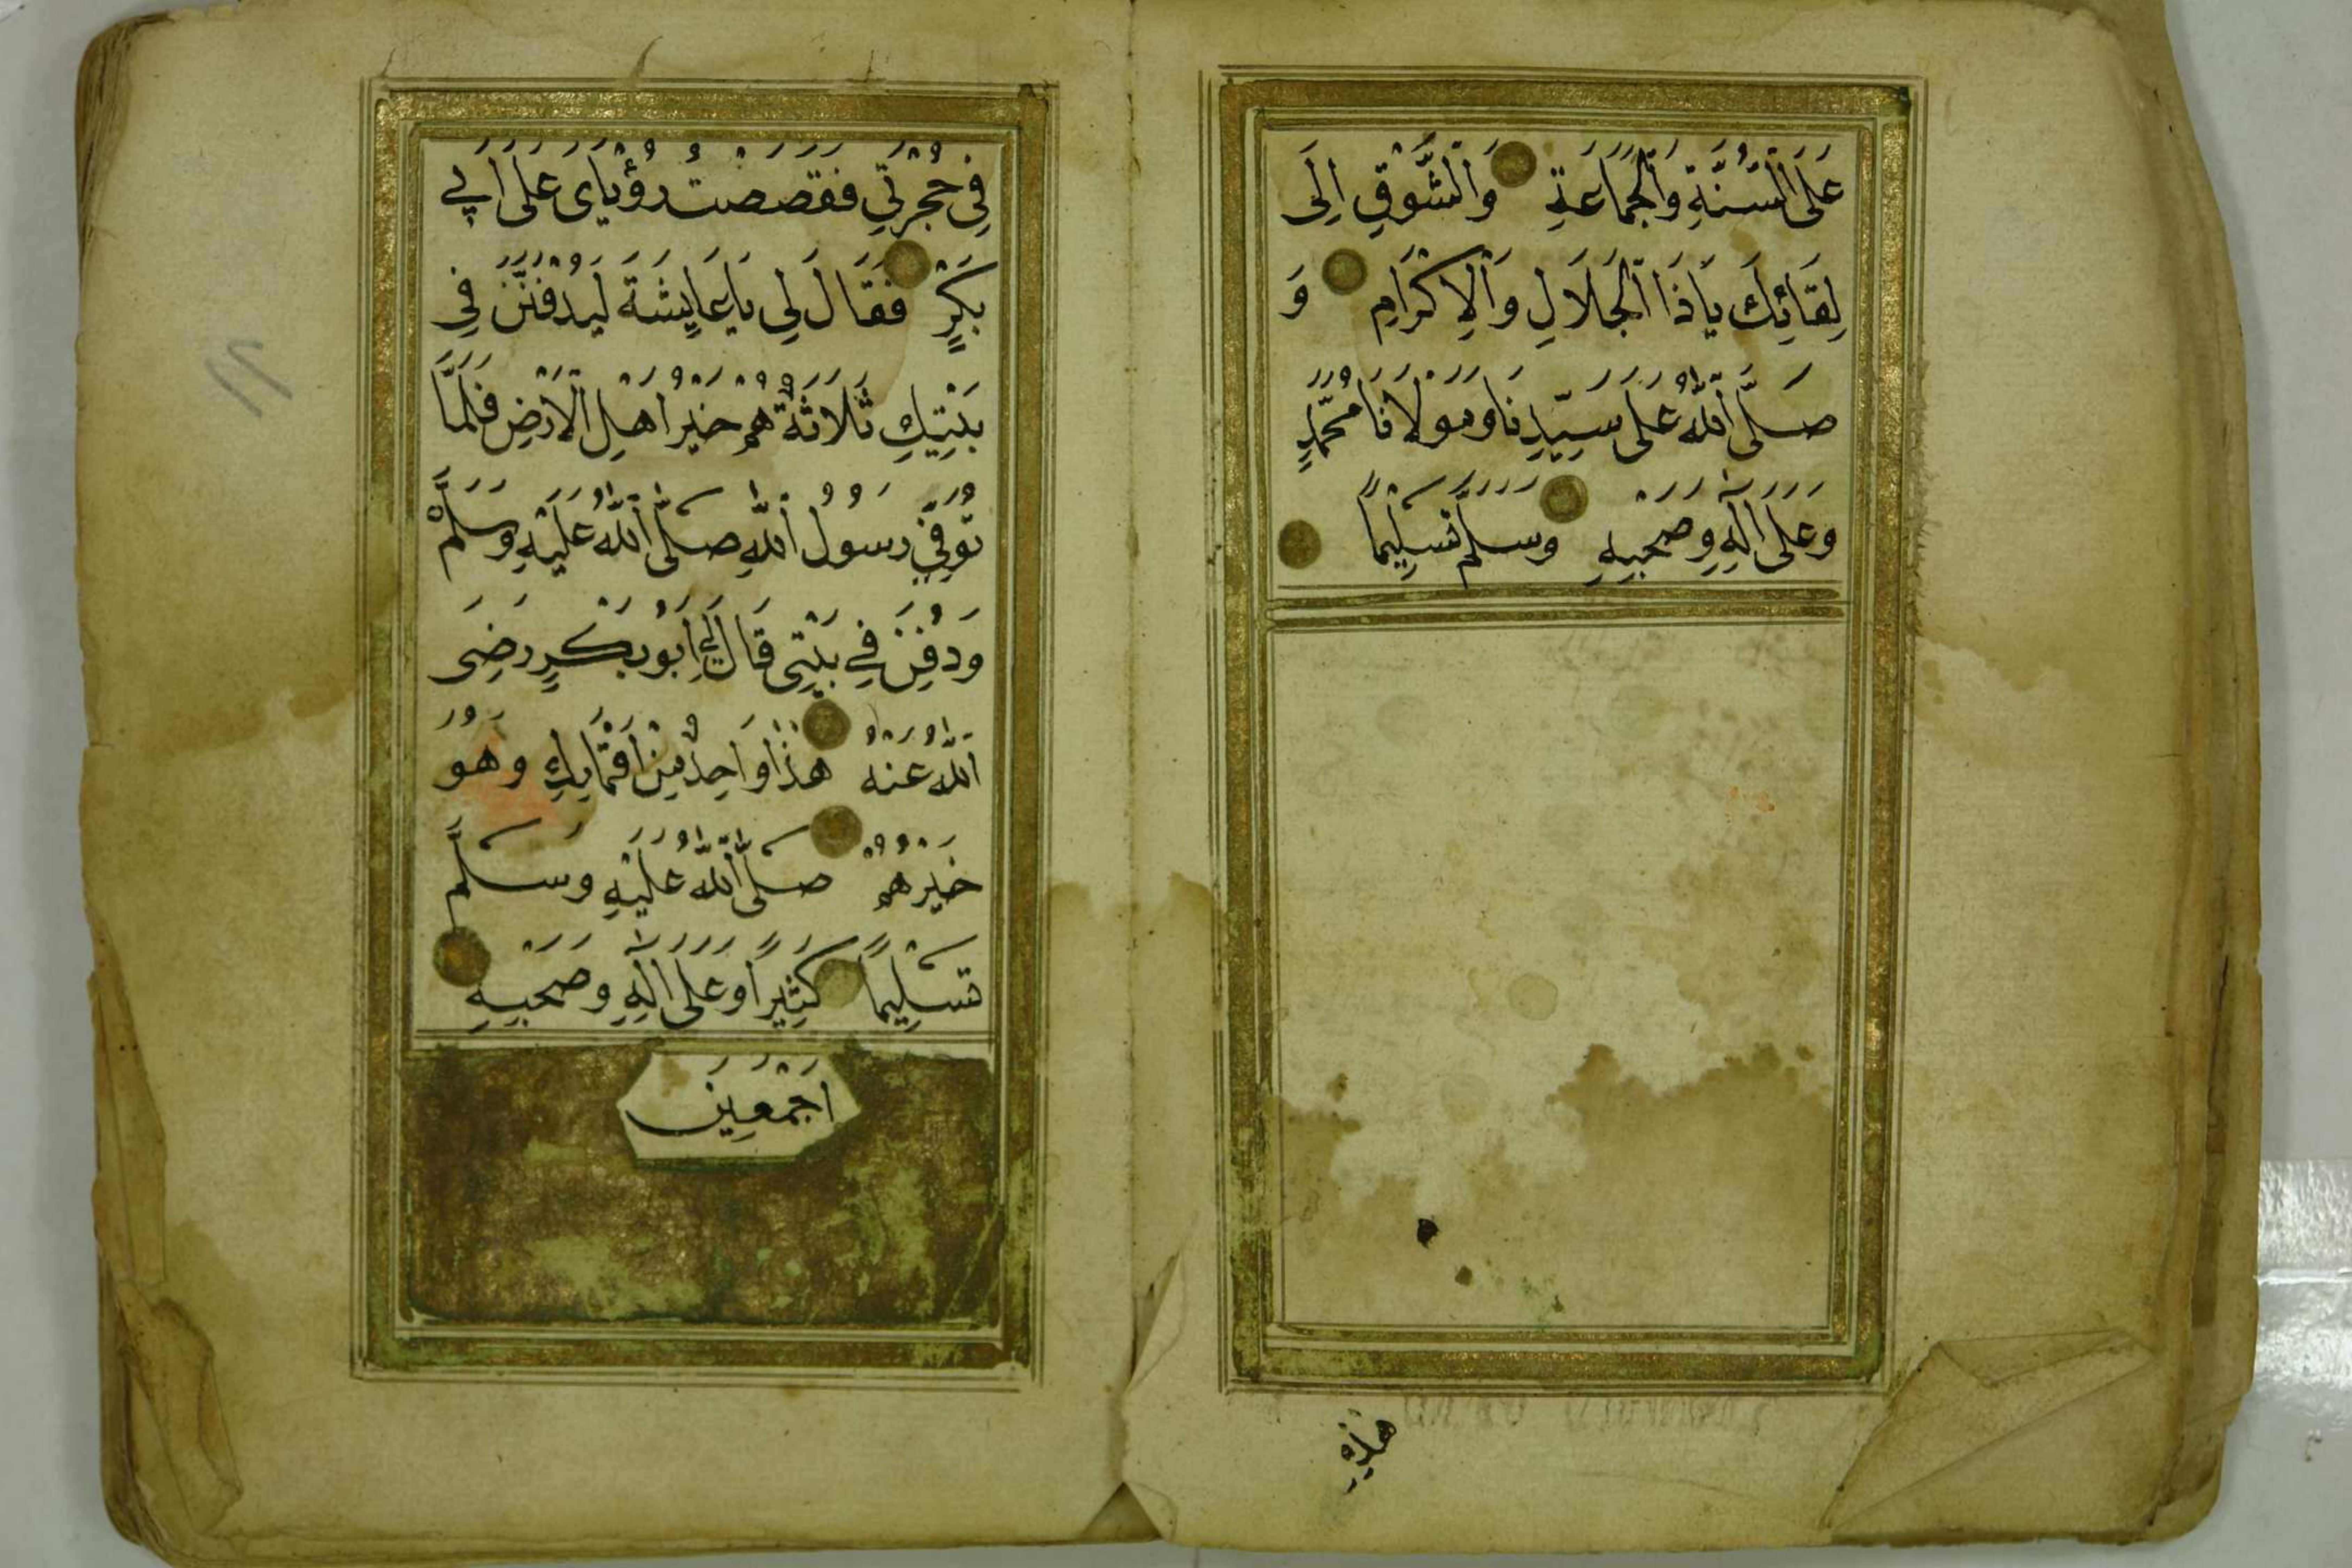 عَلَى ٱلسُّنَّةِ وَٱلْجَمَاعَةِ وَٱلشَّوْقِ اِلَى
لِقَائِكَ يَاذَا ٱلْجَلَالِ وَٱلْاِكْرَامِ وَ
صَلَّى ٱللّٰهُ عَلَى سَيِّدِنَا وَمَوْلَانَا مُحَمَّدٍ
وَعَلَى اٰلِهِ وَصَحْبِهِ وَسَلَّمَ تَسْلِيمًا
هٰذِهِ
فِي حُجْرَتِي فَقَصَصْتُ رُؤْيَايَ عَلَى اَبِي
بَكْرٍ فَقَالَ لِي يَا عَايِشَةَ لَيُدْفَنَنَّ فِي
بَيْتِكِ ثَلَاثَةٌ هُمْ خَيْرُ اَهْلِ ٱلْاَرْضِ فَلَمَّا
تُوُفِّيَ رَسُولُ ٱللّٰهِ صَلَّى ٱللّٰهُ عَلَيْهِ وَسَلَّمْ
وَدُفِنَ فِي بَيْتِي قَالَ لِي اَبُو بَكْرٍ رَضِيَ
ٱللّٰهُ عَنْهُ هٰذَا وَاحِدٌ مِنْ اَقْمَارِكِ وَهُوَ
خَيْرُهُمْ صَلَّى ٱللّٰهُ عَلَيْهِ وَسَلَّمَ
تَسْلِيمًا كَثِيرًا وَعَلَى اٰلِهِ وَصَحْبِهِ
اَجْمَعِينَ